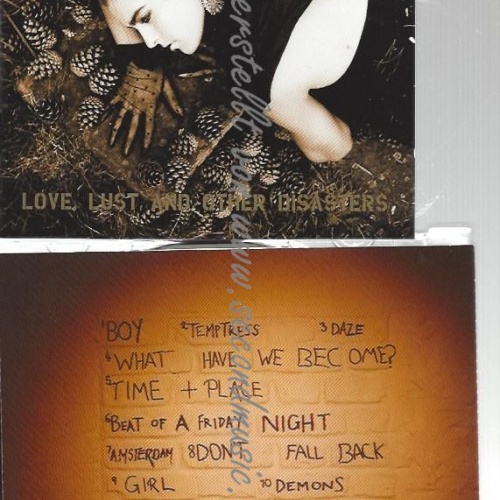 LOVE, LUST AND OTHER DISASTERS
1BOY 2TEMPTRESS 3DAZE
4WHAT HAVE WE BECOME?
5TIME + PLACE
6BEAT OF A FRIDAY NIGHT
7AMSTERDAM 8DON'T FALL BACK
9GIRL 10DEMONS
erstellt von www.secondmusic.